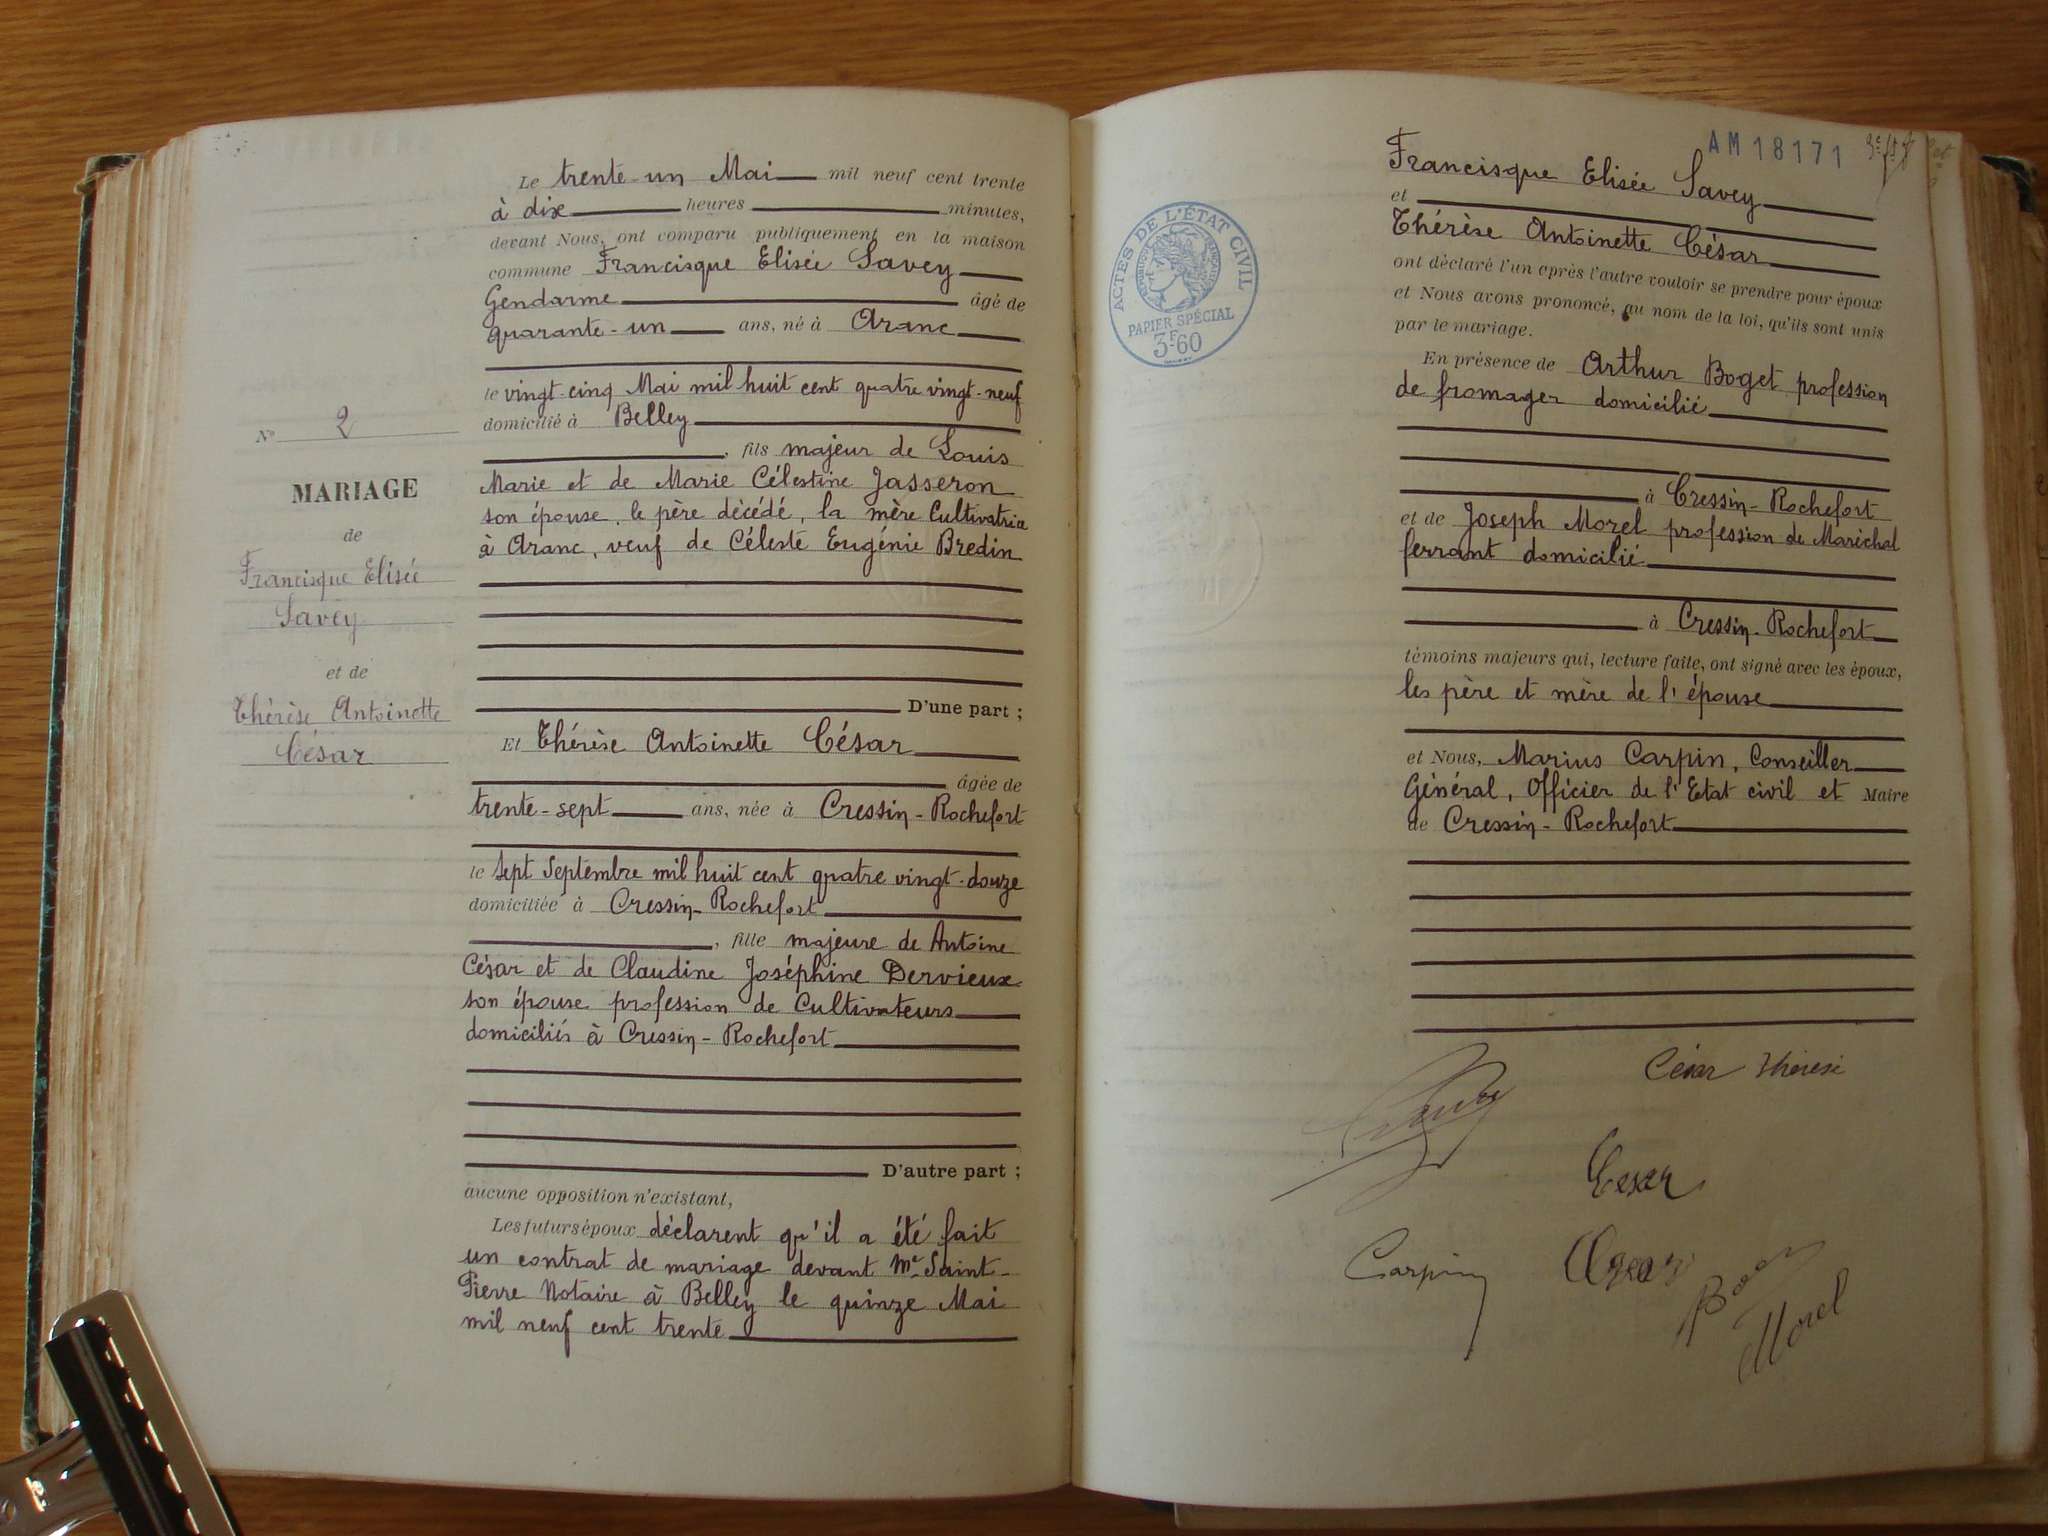 Le trente-un Mai mil neuf cent trente
à dix heures minutes,
devant Nous, ont comparu publiquement en la maison
commune Francisque Elisée Savey
Gendarme âgé de
quarante-un ans, né à Aranc
le vingt-cinq Mai mil huit cent quatre vingt-neuf
domicilié à Belley
, fils majeur de Louis
Marie et de Marie Célestine Jasseron
son épouse, le père décédé, la mère Cultivatrice
à Aranc, veuf de Céleste Eugénie Bredin
D'une part ;
Et Thérèse Antoinette César
âgée de
trente-sept ans, née à Cressin-Rochefort
le sept Septembre mil huit cent quatre vingt-douze
domiciliée à Cressin-Rochefort
, fille majeure de Antoine
César et de Claudine Joséphine Dervieux
son épouse profession de Cultivateurs
domiciliés à Cressin-Rochefort
D'autre part ;
aucune opposition n'existant,
Les futurs époux déclarent qu'il a été fait
un contrat de mariage devant Me Saint-
Pierre Notaire à Belley le quinze Mai
mil neuf cent trente
No 2
MARIAGE
de
Francisque Elisée
Savey
et de
Thérèse Antoinette
César
AM 18171
Francisque Elisée Savey
et
Thérèse Antoinette César
ont déclaré l'un après l'autre vouloir se prendre pour époux
et Nous avons prononcé, au nom de la loi, qu'ils sont unis
par le mariage.
En présence de Arthur Boget profession
de fromager domicilié
à Cressin-Rochefort
et de Joseph Morel profession de Maréchal
ferrant domicilié
à Cressin-Rochefort
témoins majeurs qui, lecture faite, ont signé avec les époux,
les père et mère de l'épouse
et Nous, Marius Carpin, Conseiller
Général, Officier de l'Etat civil et Maire
de Cressin-Rochefort
ACTES DE L'ÉTAT CIVIL
PAPIER SPÉCIAL
3F60
César Thérèse
Cesar
Carpin
Morel